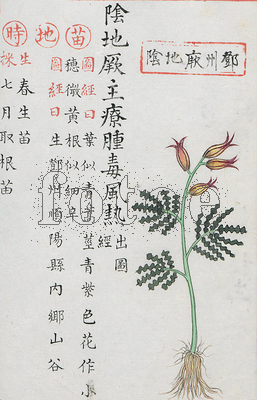 鄧州陰地厥
陰地厥主療腫毒風熱出圖經
苗圖經曰葉似青蒿莖青紫色花作小
穗微黃根似細辛
地圖經曰生鄧州順陽縣內鄉山谷
時生春生苗
採七月取根苗